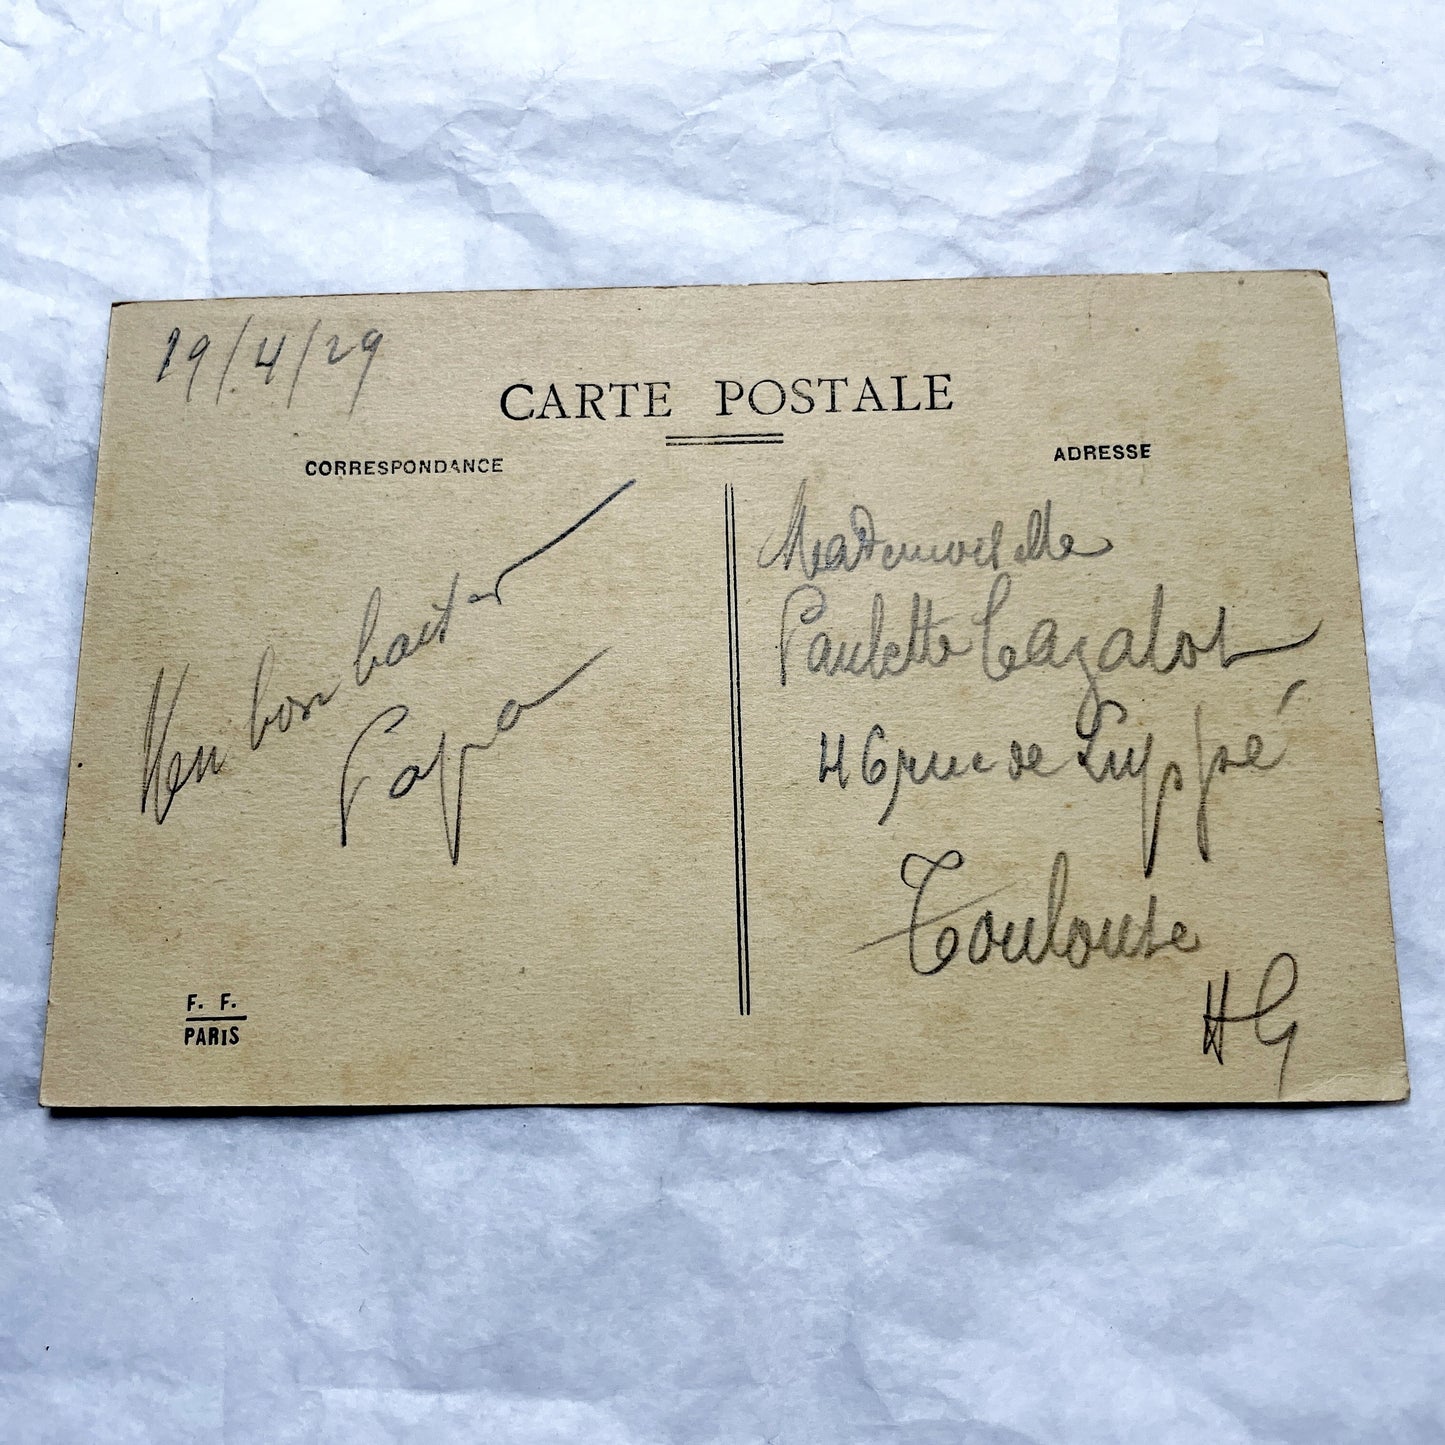 19/4/29
CARTE POSTALE
CORRESPONDANCE
ADRESSE
bon baiser
Papa
Mademoiselle
Paulette Cazalot
46 rue de
Toulouse
HG
F. F.
PARIS